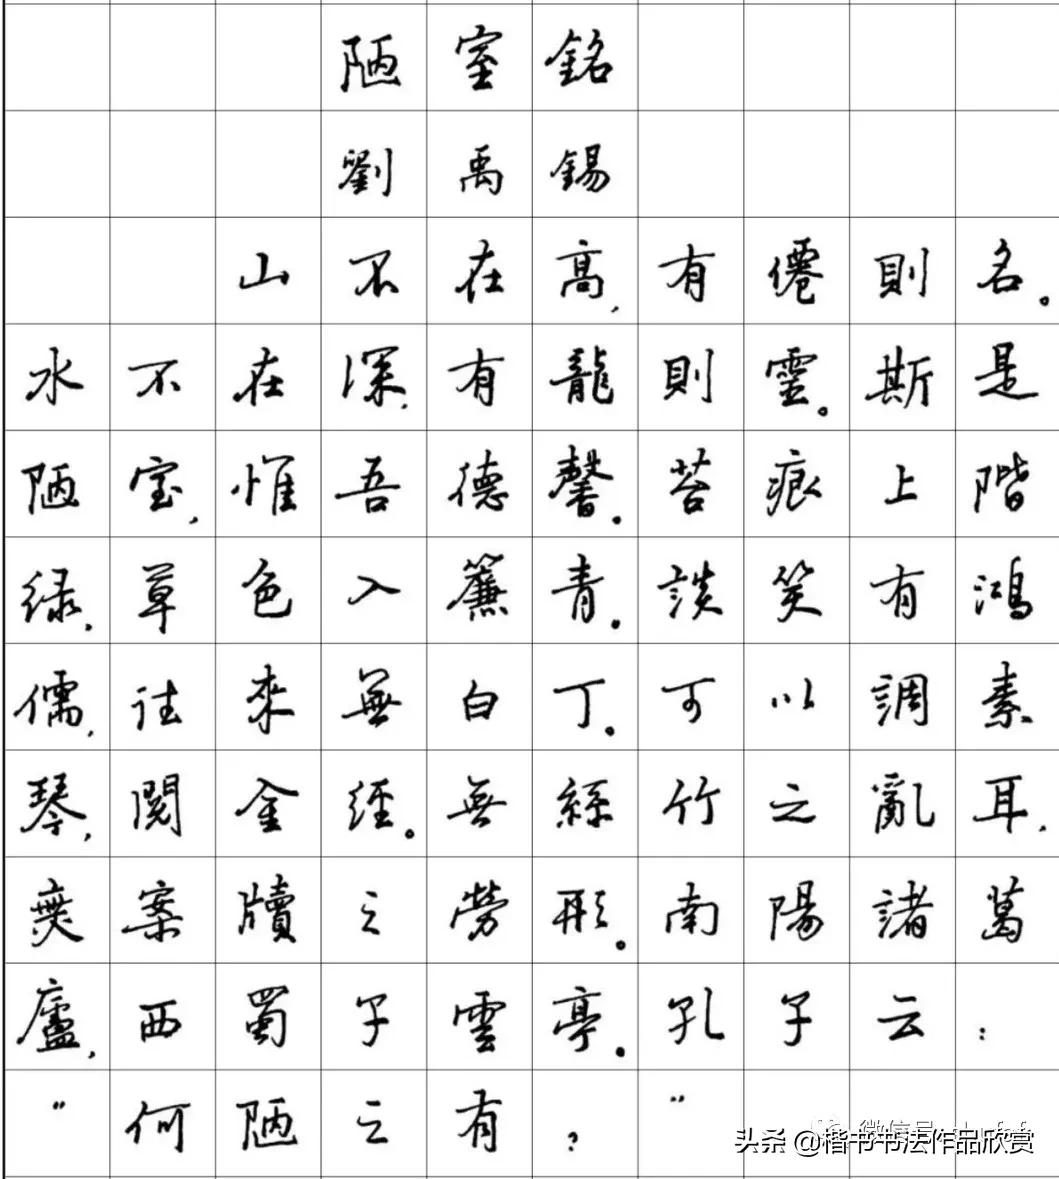 陋室銘
劉禹錫
山不在高,有僊則名。
水不在深,有龍則靈。斯是
陋室,惟吾德馨。苔痕上階
緑,草色入簾青。談笑有鴻
儒,往來無白丁。可以調素
琴,閱金經。無絲竹之亂耳,
無案牘之勞形。南陽諸葛
廬,西蜀子雲亭。孔子云:
"何陋之有?"
头条 @楷书书法作品欣赏
微信号